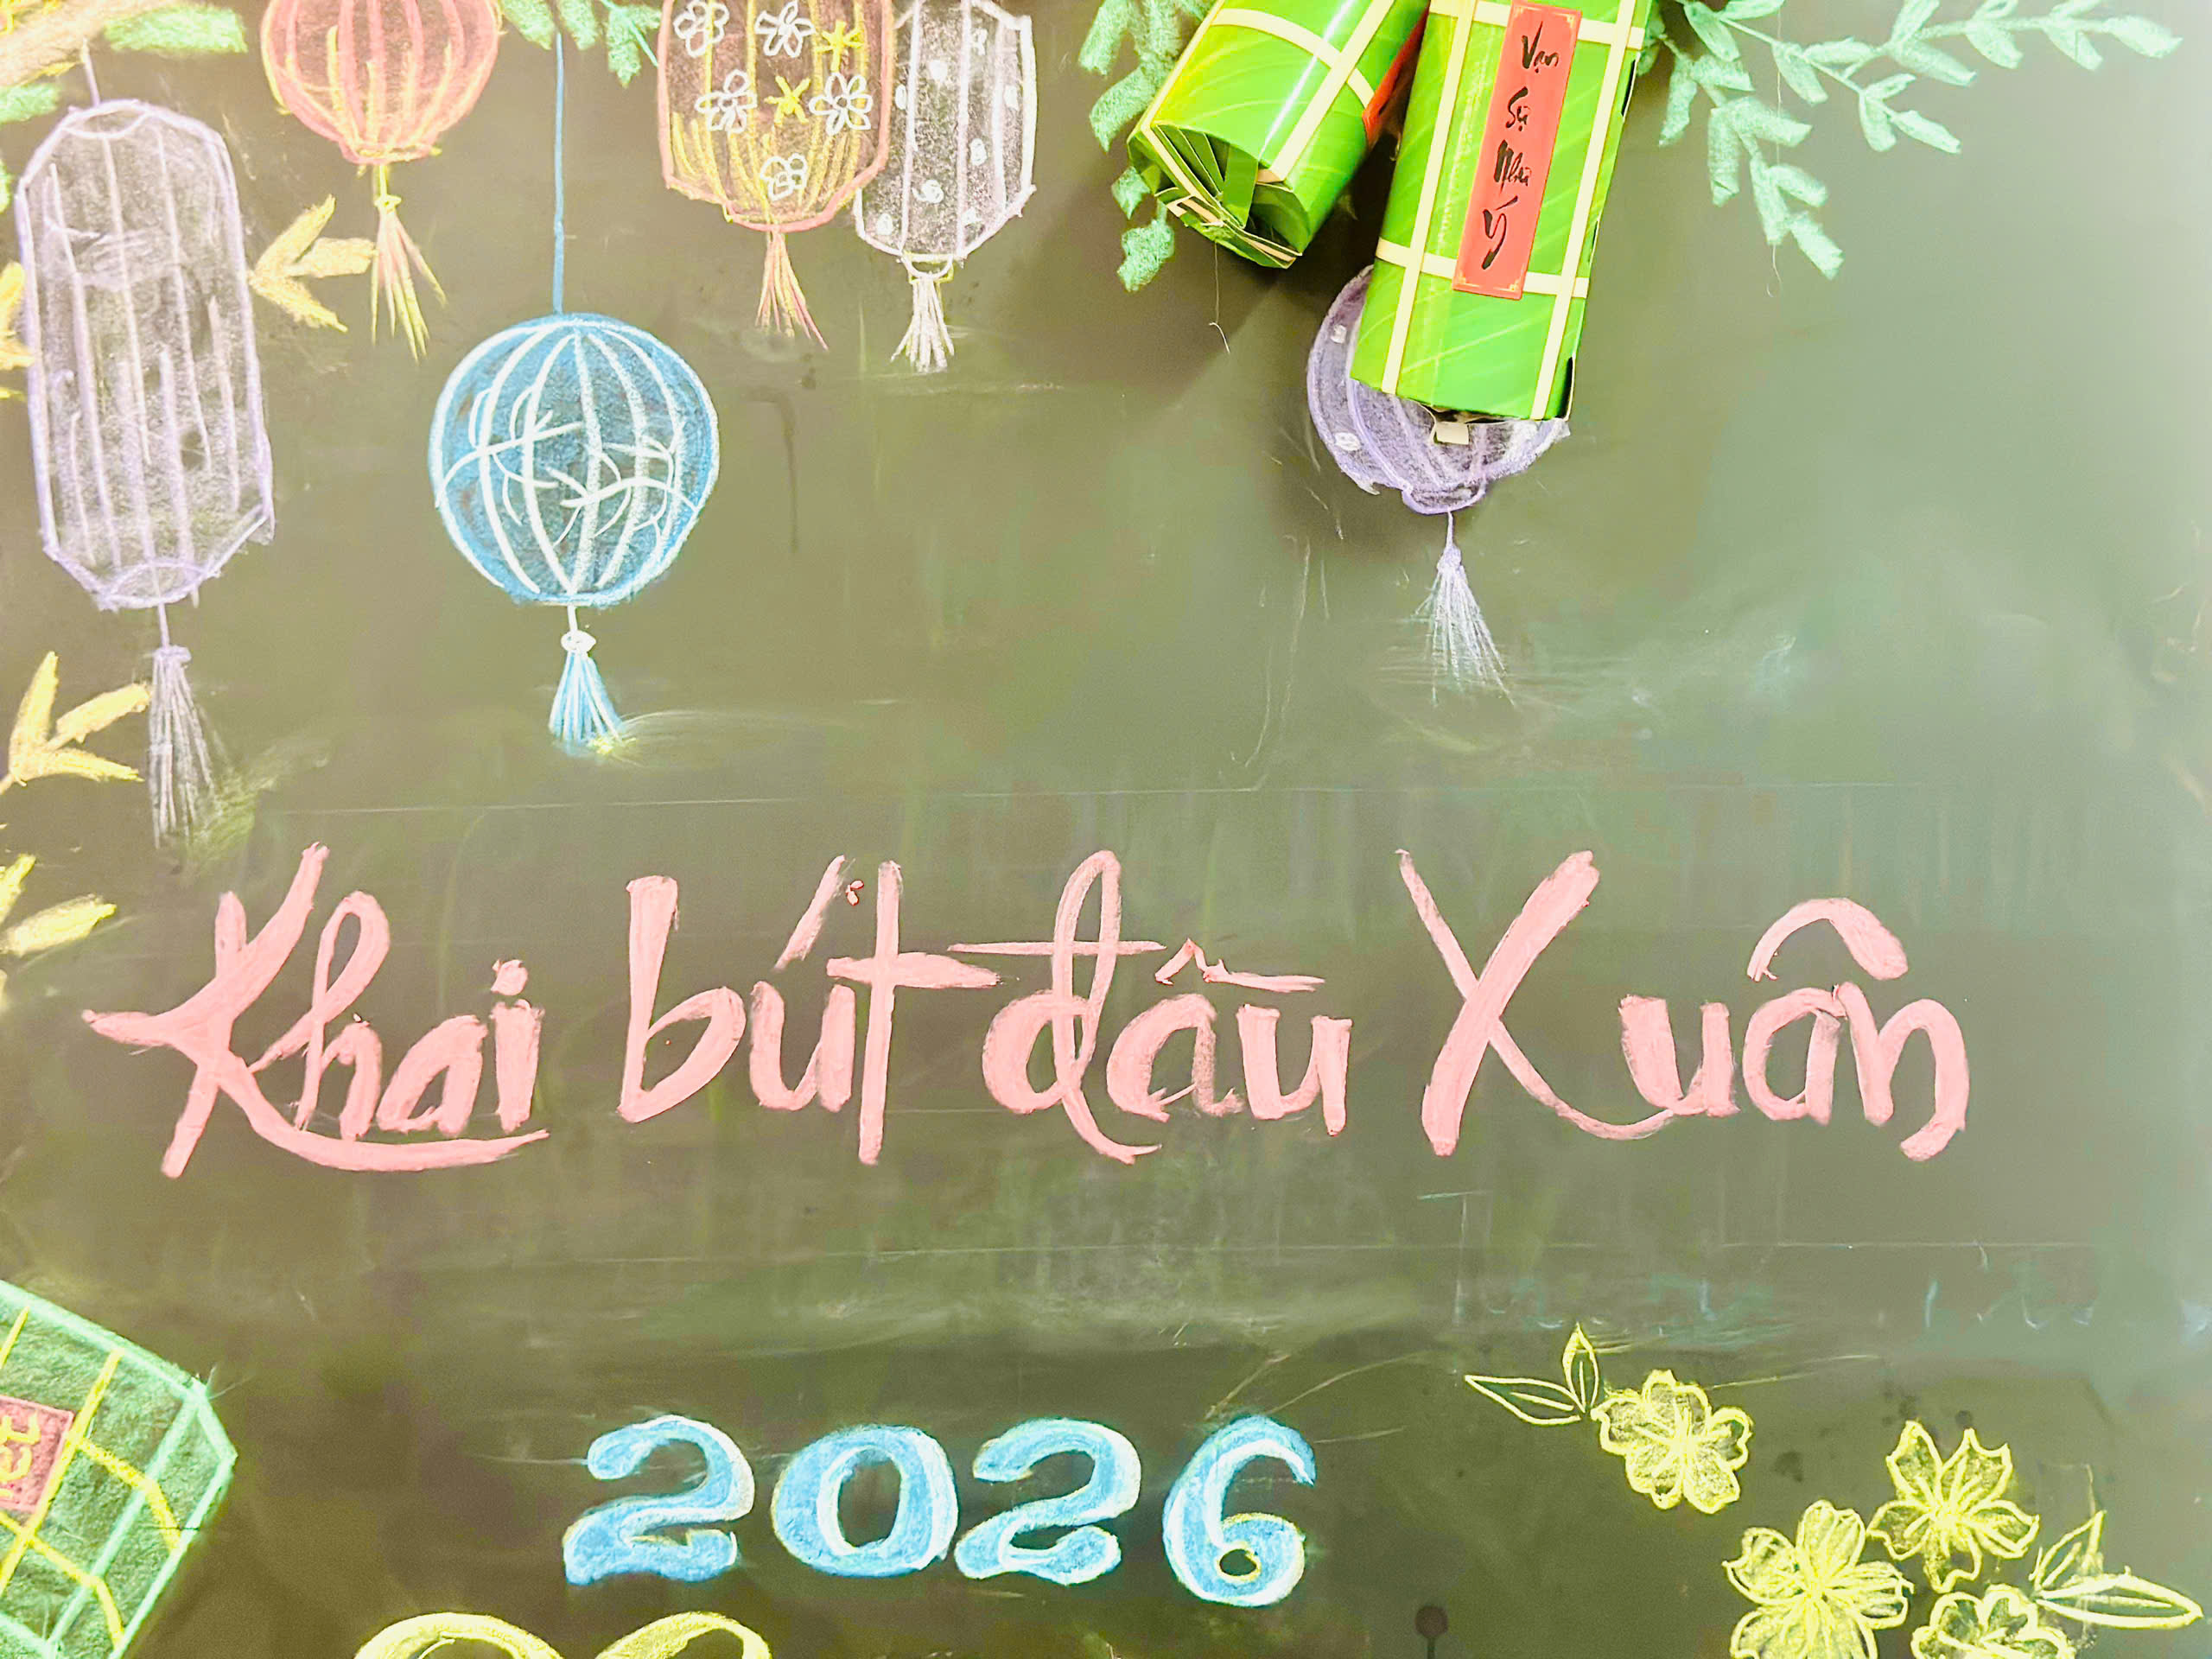 Vạn
Sự
Như
Ý
Khai bút đầu Xuân
2026